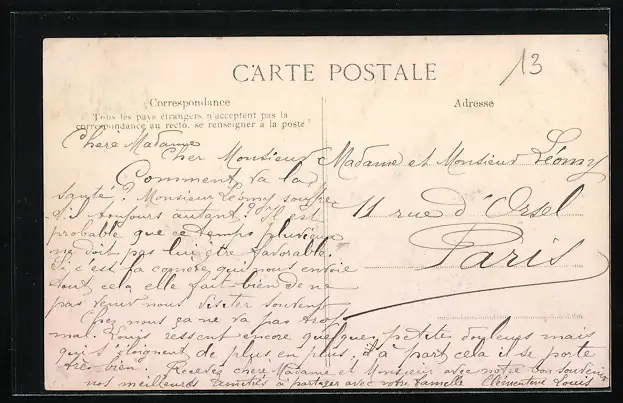 13
CARTE POSTALE
Correspondance
Tous les pays étrangers n'acceptent pas la
correspondance au recto, se renseigner à la poste
Adresse
Chère Madame
Cher Monsieur
Comment va la
santé? Monsieur Léony souffre
t'il toujours autant? Il est
probable que ce temps pluvieux
ne doit pas lui être favorable.
Si c'est la comète qui nous envoie
tout cela elle fait bien de ne
pas venir nous visiter souvent
Chez nous ça ne va pas trop
mal. Louis ressent encore quelques petites douleurs mais
qui s'éloignent de plus en plus, à part cela il se porte
très bien. Recevez chère Madame et Monsieur avec notre bon souvenir
nos meilleures amitiés à partager avec votre famille Clémentine Louis
Madame et Monsieur Léony
11 rue d'Orsel
Paris